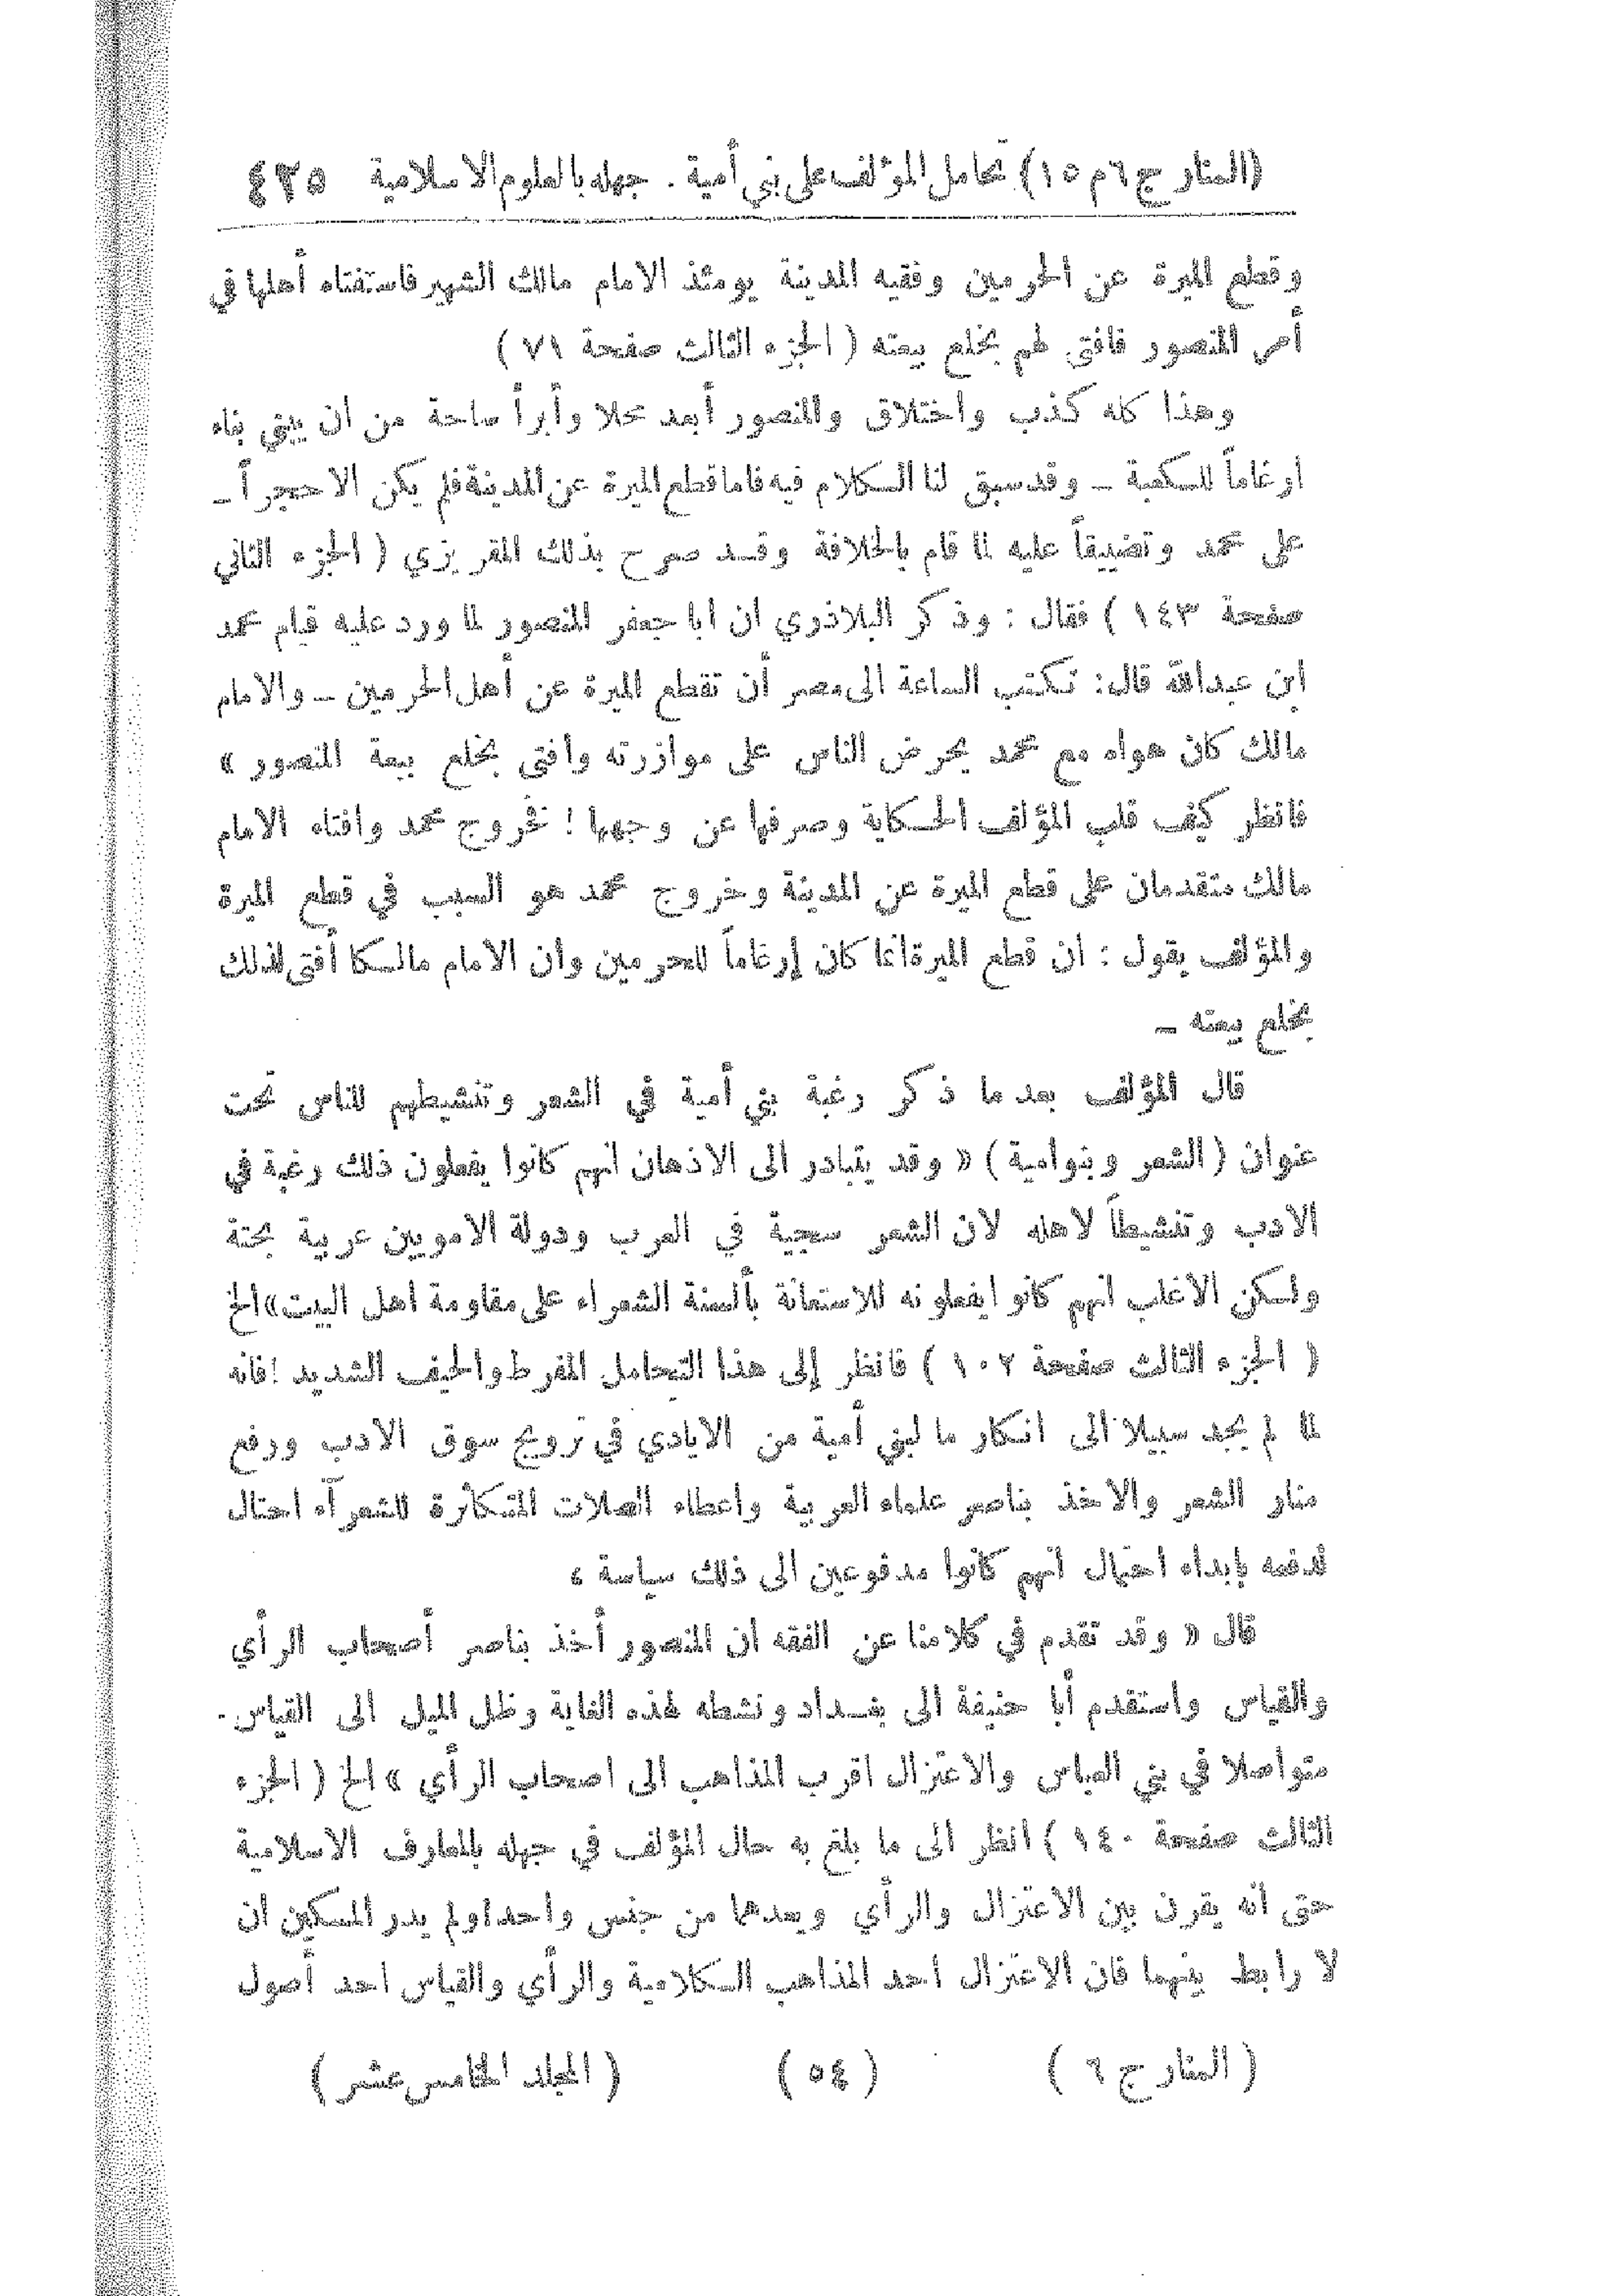 (المنار ج٦ م١٥) تحامل المؤلف على بني أمية . جهله بالعلوم الاسلامية ٤٢٥
وقطع الميرة عن الحرمين وفقيه المدينة يومئذ الامام مالك الشهير فاستفتاه أهلها في
أمر المنصور فافتى لهم بخلع بيعته ( الجزء الثالث صفحة ٧١ )
وهذا كله كذب واختلاق والمنصور أبعد محلا وأبرأ ساحة من ان يبني بناه
ارغاماً للكعبة ــ وقد سبق لنا الكلام فيه فاما قطع الميرة عن المدينة فلم يكن الا حجراً ــ
على محمد وتضييقاً عليه لما قام بالخلافة وقد صرح بذلك المقريزي ( الجزء الثاني
صفحة ١٤٣ ) فقال : وذكر البلاذري ان ابا جعفر المنصور لما ورد عليه قيام محمد
ابن عبدالله قال: تكتب الساعة الى مصر أن تقطع الميرة عن أهل الحرمين ــ والامام
مالك كان هواه مع محمد يحرض الناس على موازرته وافتى بخلع بيعة المنصور »
فانظر كيف قلب المؤلف الحكاية وصرفها عن وجهها ! فخروج محمد وافتاء الامام
مالك متقدمان على قطع الميرة عن المدينة وخروج محمد هو السبب في قطع الميرة
والمؤلف يقول : ان قطع الميرة انما كان إرغاماً للحرمين وان الامام مالكا أفتى لذلك
بخلع بيعته ــ
قال المؤلف بعد ما ذكر رغبة بني أمية في الشعر وتنشيطهم للناس تحت
عنوان ( الشعر وبنوامية ) « وقد يتبادر الى الاذهان انهم كانوا يفعلون ذلك رغبة في
الادب وتنشيطاً لاهله لان الشعر سجية في العرب ودولة الامويين عربية بحتة
ولكن الاغلب انهم كانوا يفعلونه للاستعانة بألسنة الشعراء على مقاومة اهل البيت» الخ
( الجزء الثالث صفحة ١٠٢ ) فانظر إلى هذا التحامل المفرط والحيف الشديد ! فانه
لما لم يجد سبيلا الى انكار ما لبني أمية من الايادي في ترويج سوق الادب ورفع
منار الشعر والاخذ بناصر علماء العربية واعطاء الصلات المتكاثرة للشعرآء احتال
لدفعه بابداء احتمال انهم كانوا مدفوعين الى ذلك سياسة ،
قال « وقد تقدم في كلامنا عن الفقه ان المنصور أخذ بناصر أصحاب الرأي
والقياس واستقدم أبا حنيفة الى بغداد ونشطه لهذه الغاية وظل الميل الى القياس
متواصلا في بني العباس والاعتزال اقرب المذاهب الى اصحاب الرأي » الخ ( الجزء
الثالث صفحة ١٤٠ ) انظر الى ما بلغ به حال المؤلف في جهله بالمعارف الاسلامية
حتى انه يقرن بين الاعتزال والرأي ويعدهما من جنس واحد! ولم يدر المسكين ان
لا رابط بينهما فان الاعتزال احد المذاهب الكلامية والرأي والقياس احد أصول
( المنار ج ٦ ) ( ٥٤ ) ( المجلد الخامس عشر )